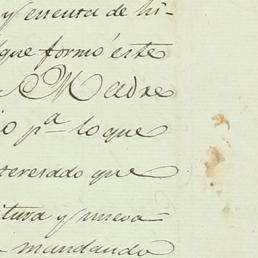 y esenta de hi-
que formó éste
Madre
o p.ª lo que
teresado que
itura y nueva-
mandando